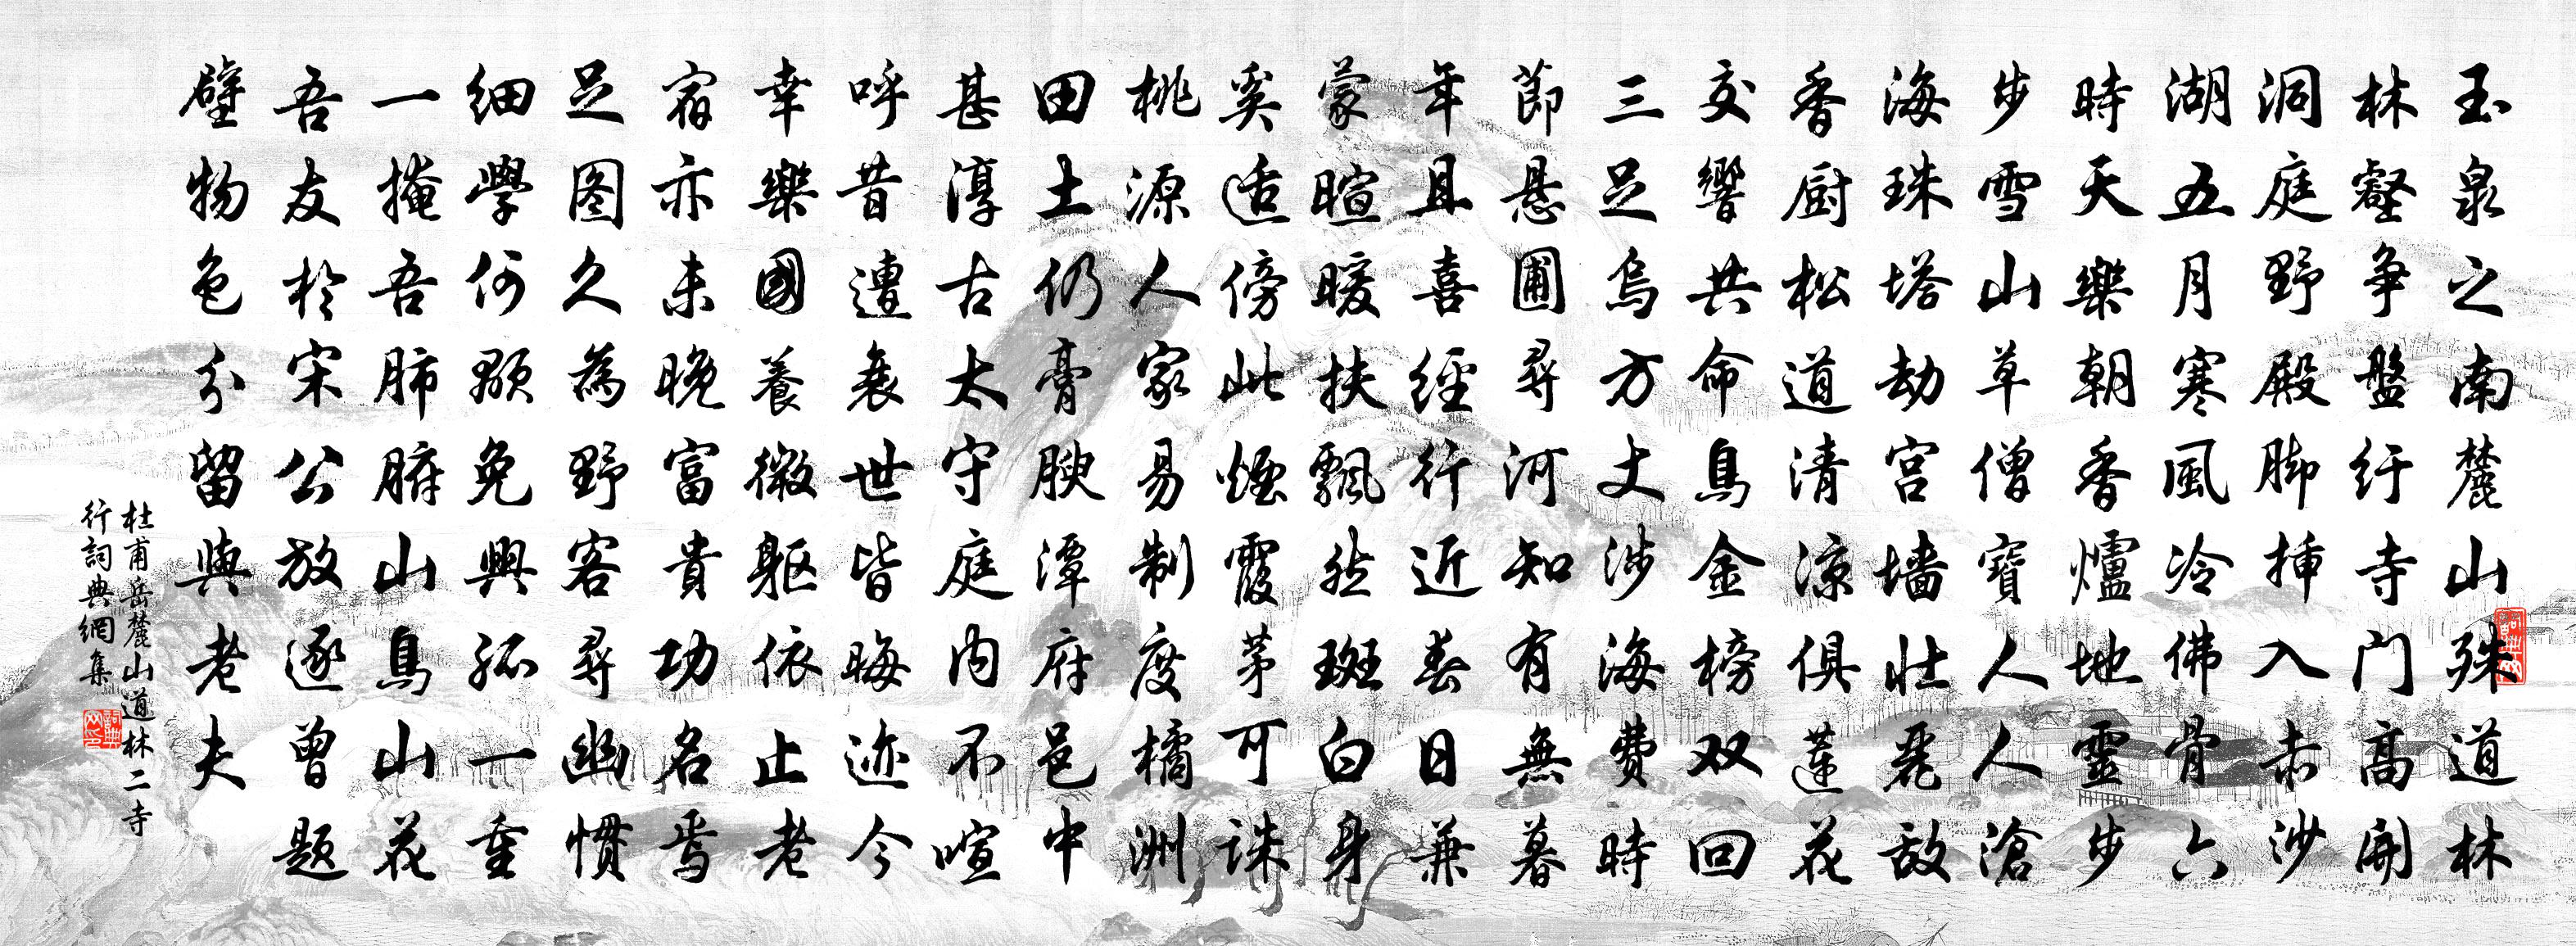 玉泉之南麓山殊道林
林壑争盤紆寺门高開
洞庭野殿脚插入赤沙
湖五月寒風冷佛骨六
時天樂朝香爐地靈步
步雪山草僧寶人人滄
海珠塔劫宫墙壯麗敌
香廚松道清凉俱蓮花
交響共命鳥金榜双回
三足烏方丈涉海费時
節悬圃尋河知有無暮
年且喜經行近春日兼
蒙暄暖扶飄然斑白身
奚适傍此煙霞茅可誅
桃源人家易制度橘洲
田土仍膏腴潭府邑中
甚淳古太守庭内不喧
呼昔遭衰世皆晦迹今
幸樂國養微軀依止老
宿亦未晚富貴功名焉
足图久為野客尋幽慣
細學何顒免興孤一重
一掩吾肺腑山鳥山花
吾友於宋公放逐曾題
壁物色分留與老夫
杜甫岳麓山道林二寺
行詞典網集